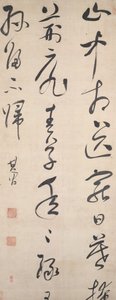 山中相送罷日暮掩
荊扉春草年〻綠王
孫歸不歸 其昌